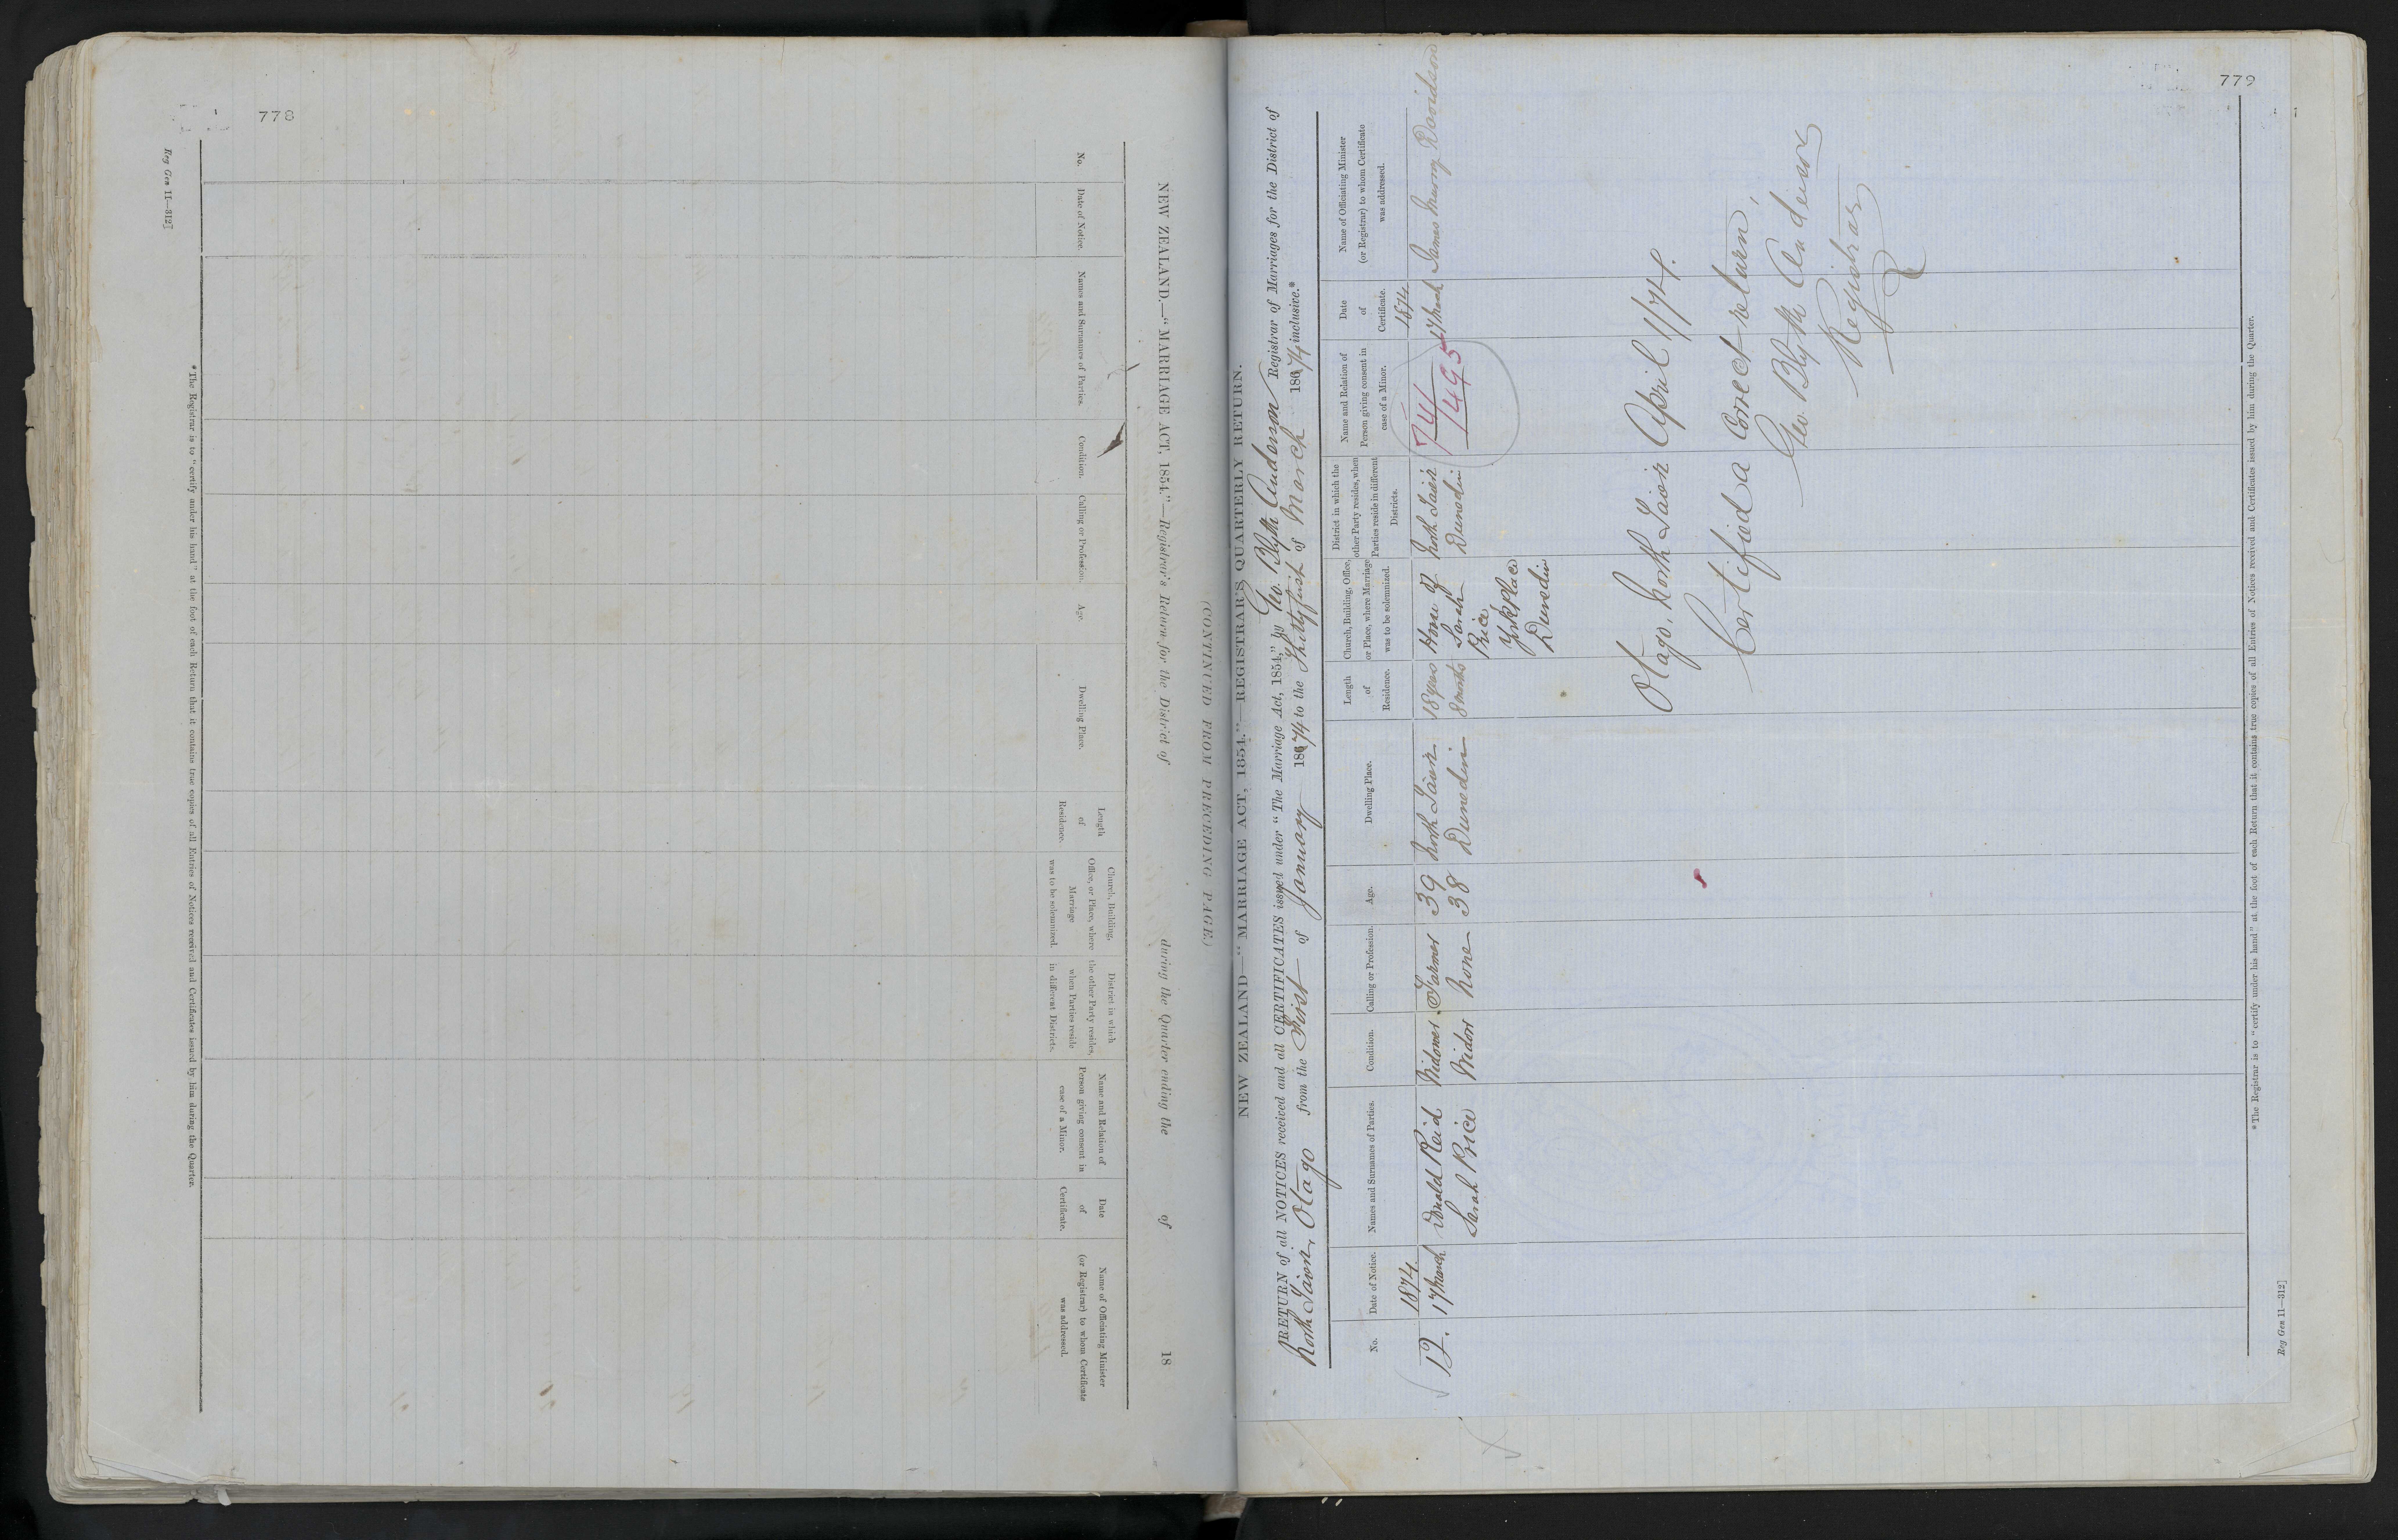 778
Reg Gen 11—312]
NEW ZEALAND.—"MARRIAGE ACT, 1854."—Registrar's Return for the District of during the Quarter ending the of 18
No.
Date of Notice.
Names and Surnames of Parties.
Condition.
Calling or Profession.
Age.
Dwelling Place.
Length
of
Residence.
Church, Building,
Office, or Place, where
Marriage
was to be solemnized.
District in which
the other Party resides,
when Parties reside
in different Districts.
Name and Relation of
Person giving consent in
case of a Minor.
Date
of
Certificate.
Name of Officiating Minister
(or Registrar) to whom Certificate
was addressed.
* The Registrar is to "certify under his hand" at the foot of each Return that it contains true copies of all Entries of Notices received and Certificates issued by him during the Quarter.
(CONTINUED FROM PRECEDING PAGE)
779
NEW ZEALAND—"MARRIAGE ACT, 1854."—REGISTRAR'S QUARTERLY RETURN.
RETURN of all NOTICES received and all CERTIFICATES issued under "The Marriage Act, 1854," by Geo. Blyth Anderson Registrar of Marriages for the District of
North Taieri, Otago from the First of January 1874 to the Thirtyfirst of March 1874 inclusive.*
No.
Date of Notice.
Names and Surnames of Parties.
Condition.
Calling or Profession.
Age.
Dwelling Place.
Length
of
Residence.
Church, Building, Office,
or Place, where Marriage
was to be solemnized.
District in which the
other Party resides, when
Parties reside in different
Districts.
Name and Relation of
Person giving consent in
case of a Minor.
Date
of
Certificate.
Name of Officiating Minister
(or Registrar) to whom Certificate
was addressed.
12.
1874
17 March
Donald Reid
Sarah Price
Widower
Widow
Farmer
None
39
38
North Taieri
Dunedin
18 years
8 months
House of
Sarah
Price
York Place
Dunedin
North Taieri
Dunedin
74/
1495
1874
17 March
James Murray Davidson
Otago, North Taieri April 1/74.
Certified a correct return,
Geo. Blyth Anderson
Registrar
* The Registrar is to "certify under his hand" at the foot of each Return that it contains true copies of all Entries of Notices received and Certificates issued by him during the Quarter.
Reg Gen 11—312]